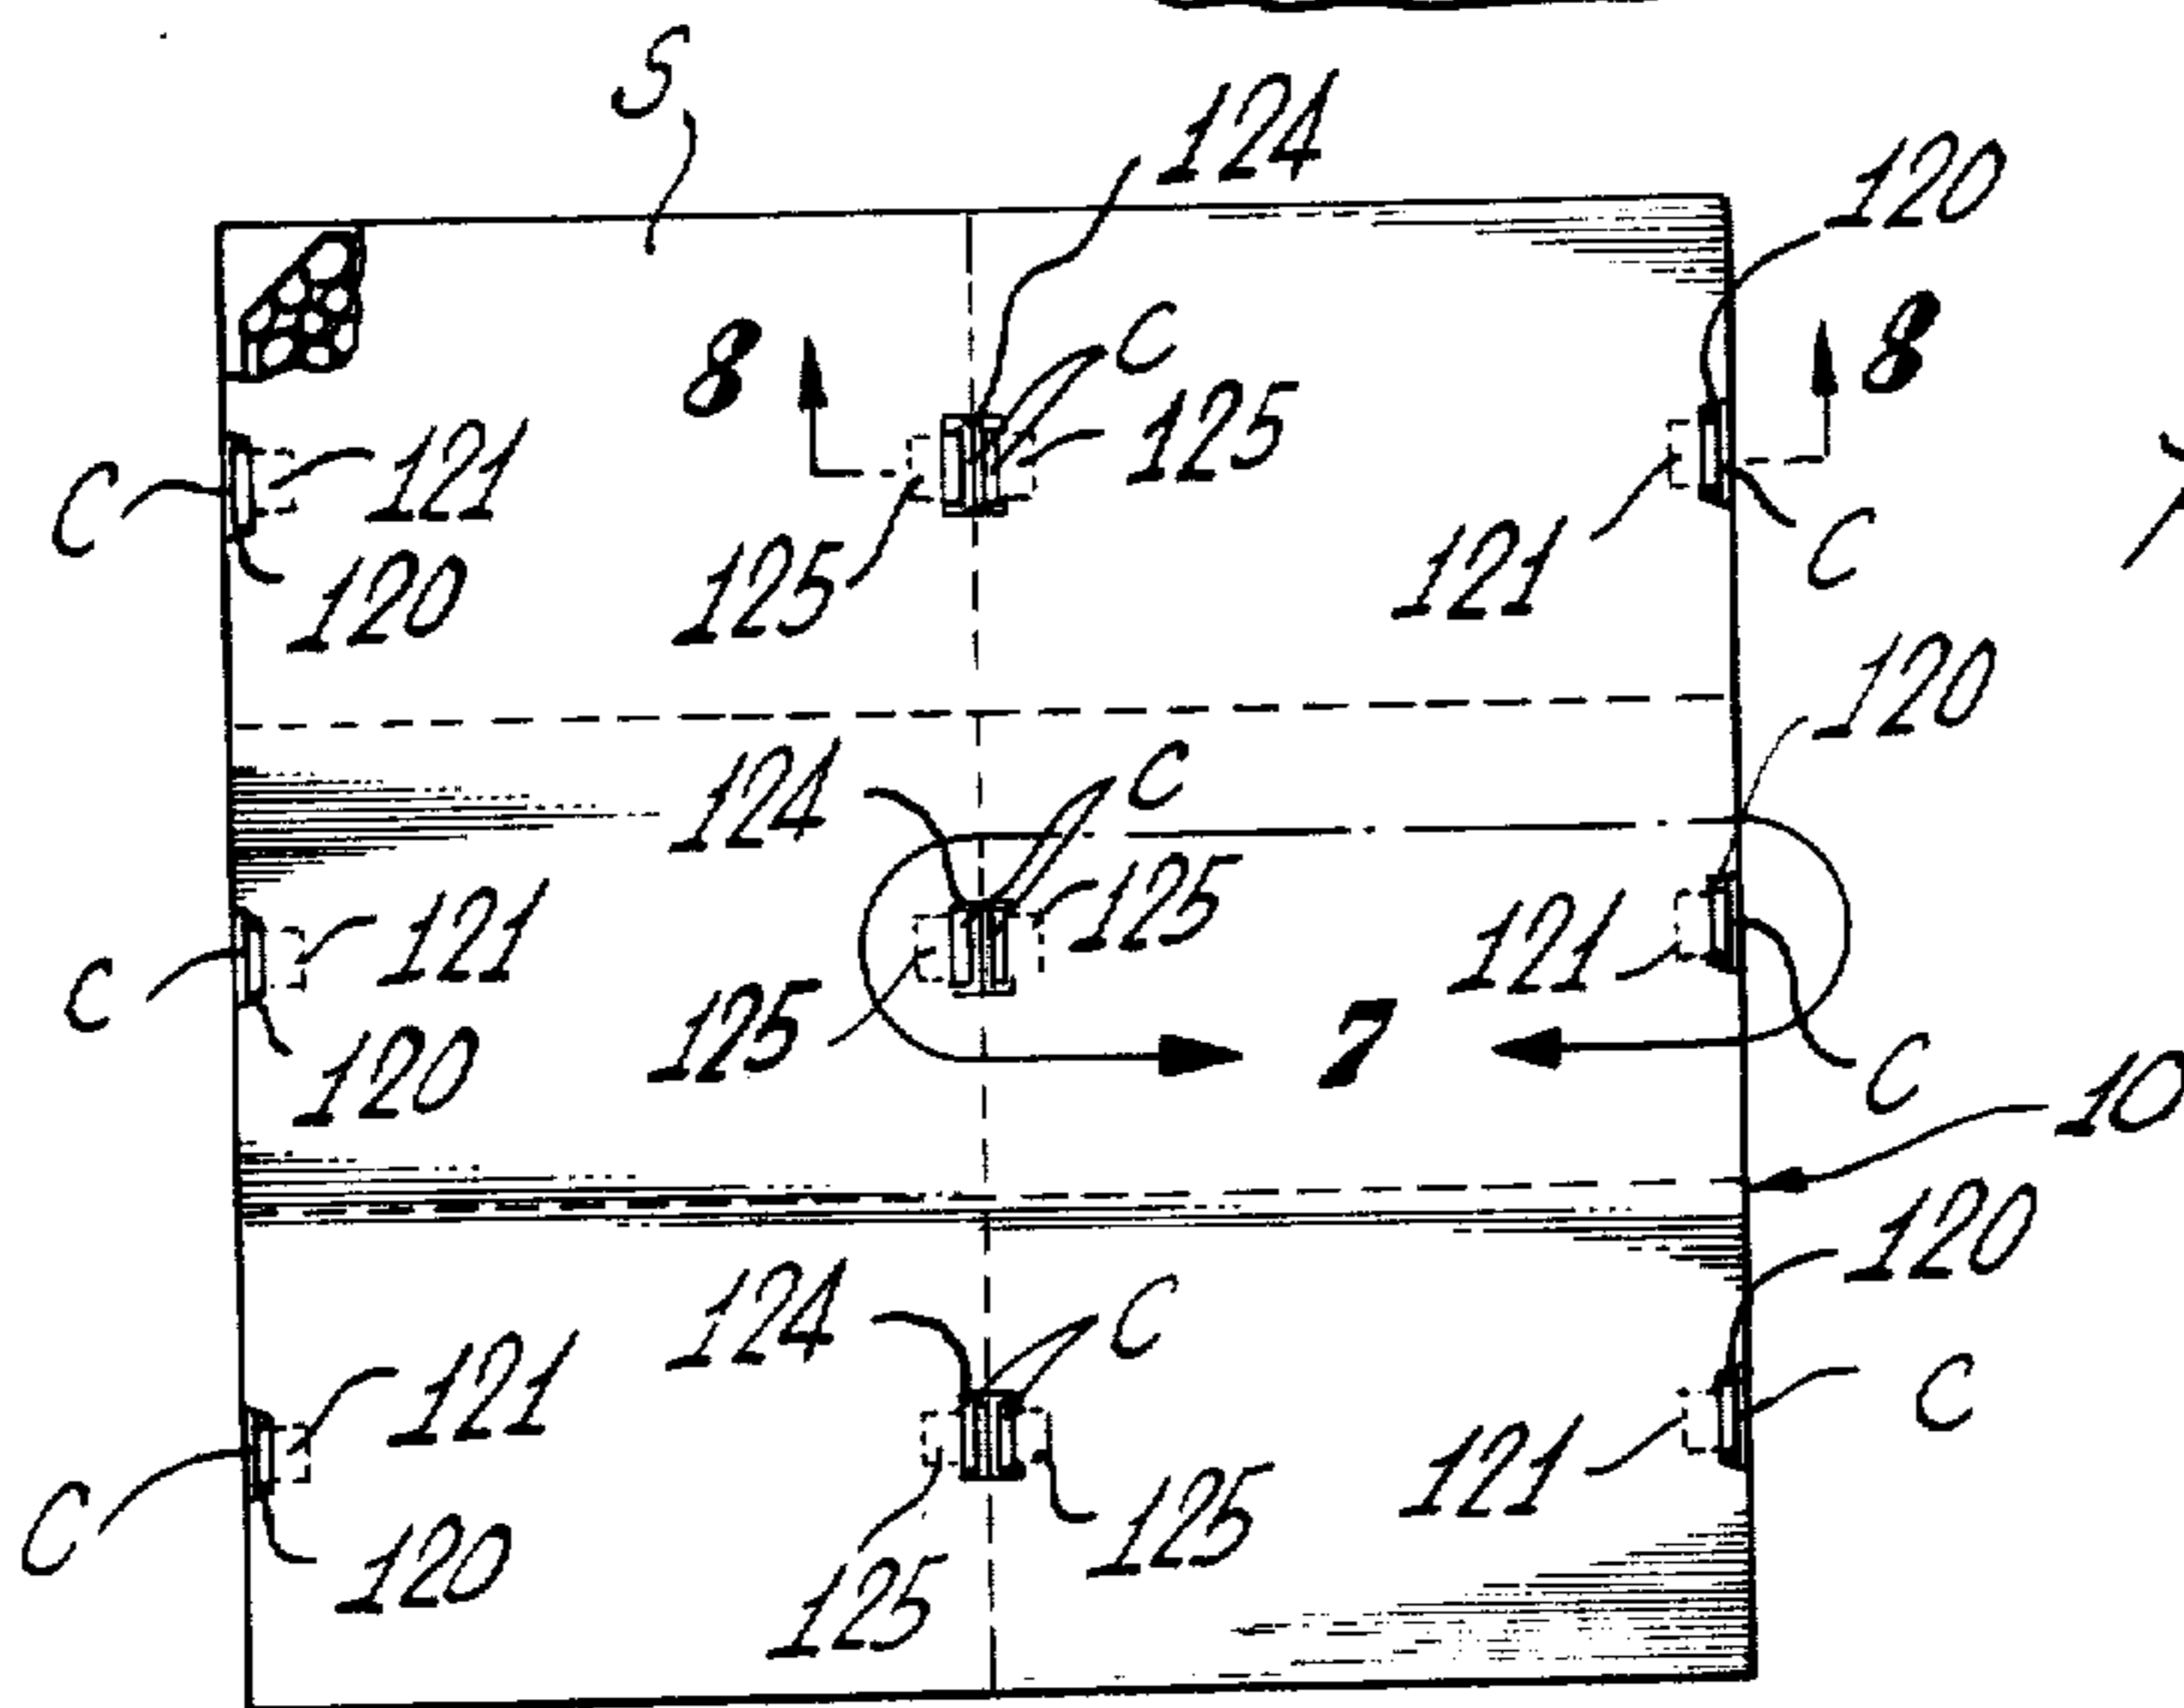 S
124
120
8
C
125
8
C
121
120
125
121
C
120
124
C
125
121
C
121
120
125
7
C
10
120
124
C
121
C
125
121
C
120
125